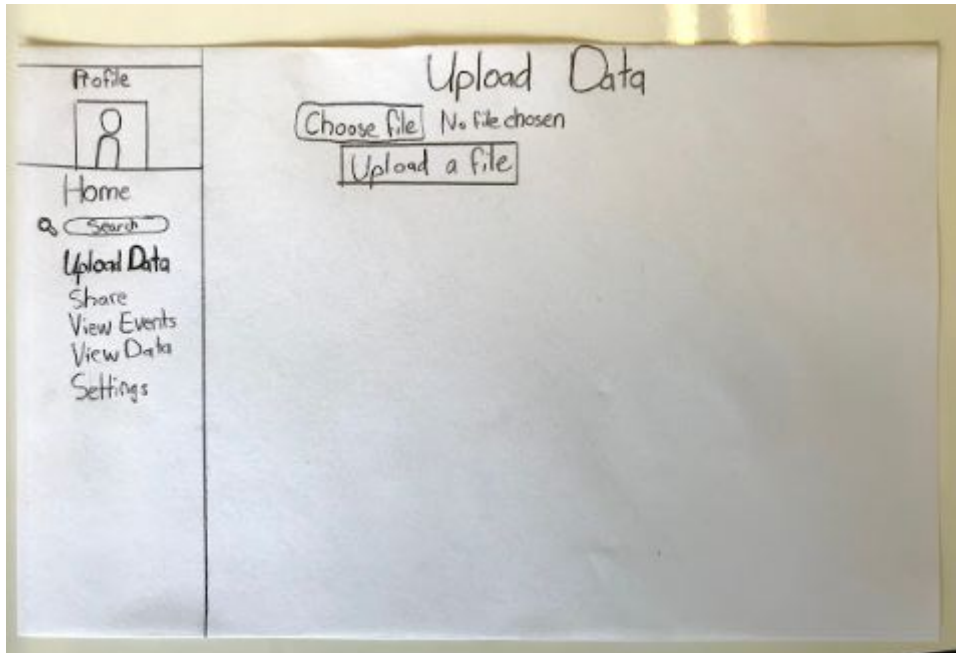 Profile
Home
Search
Upload Data
Share
View Events
View Data
Settings
Upload Data
Choose file No file chosen
Upload a file